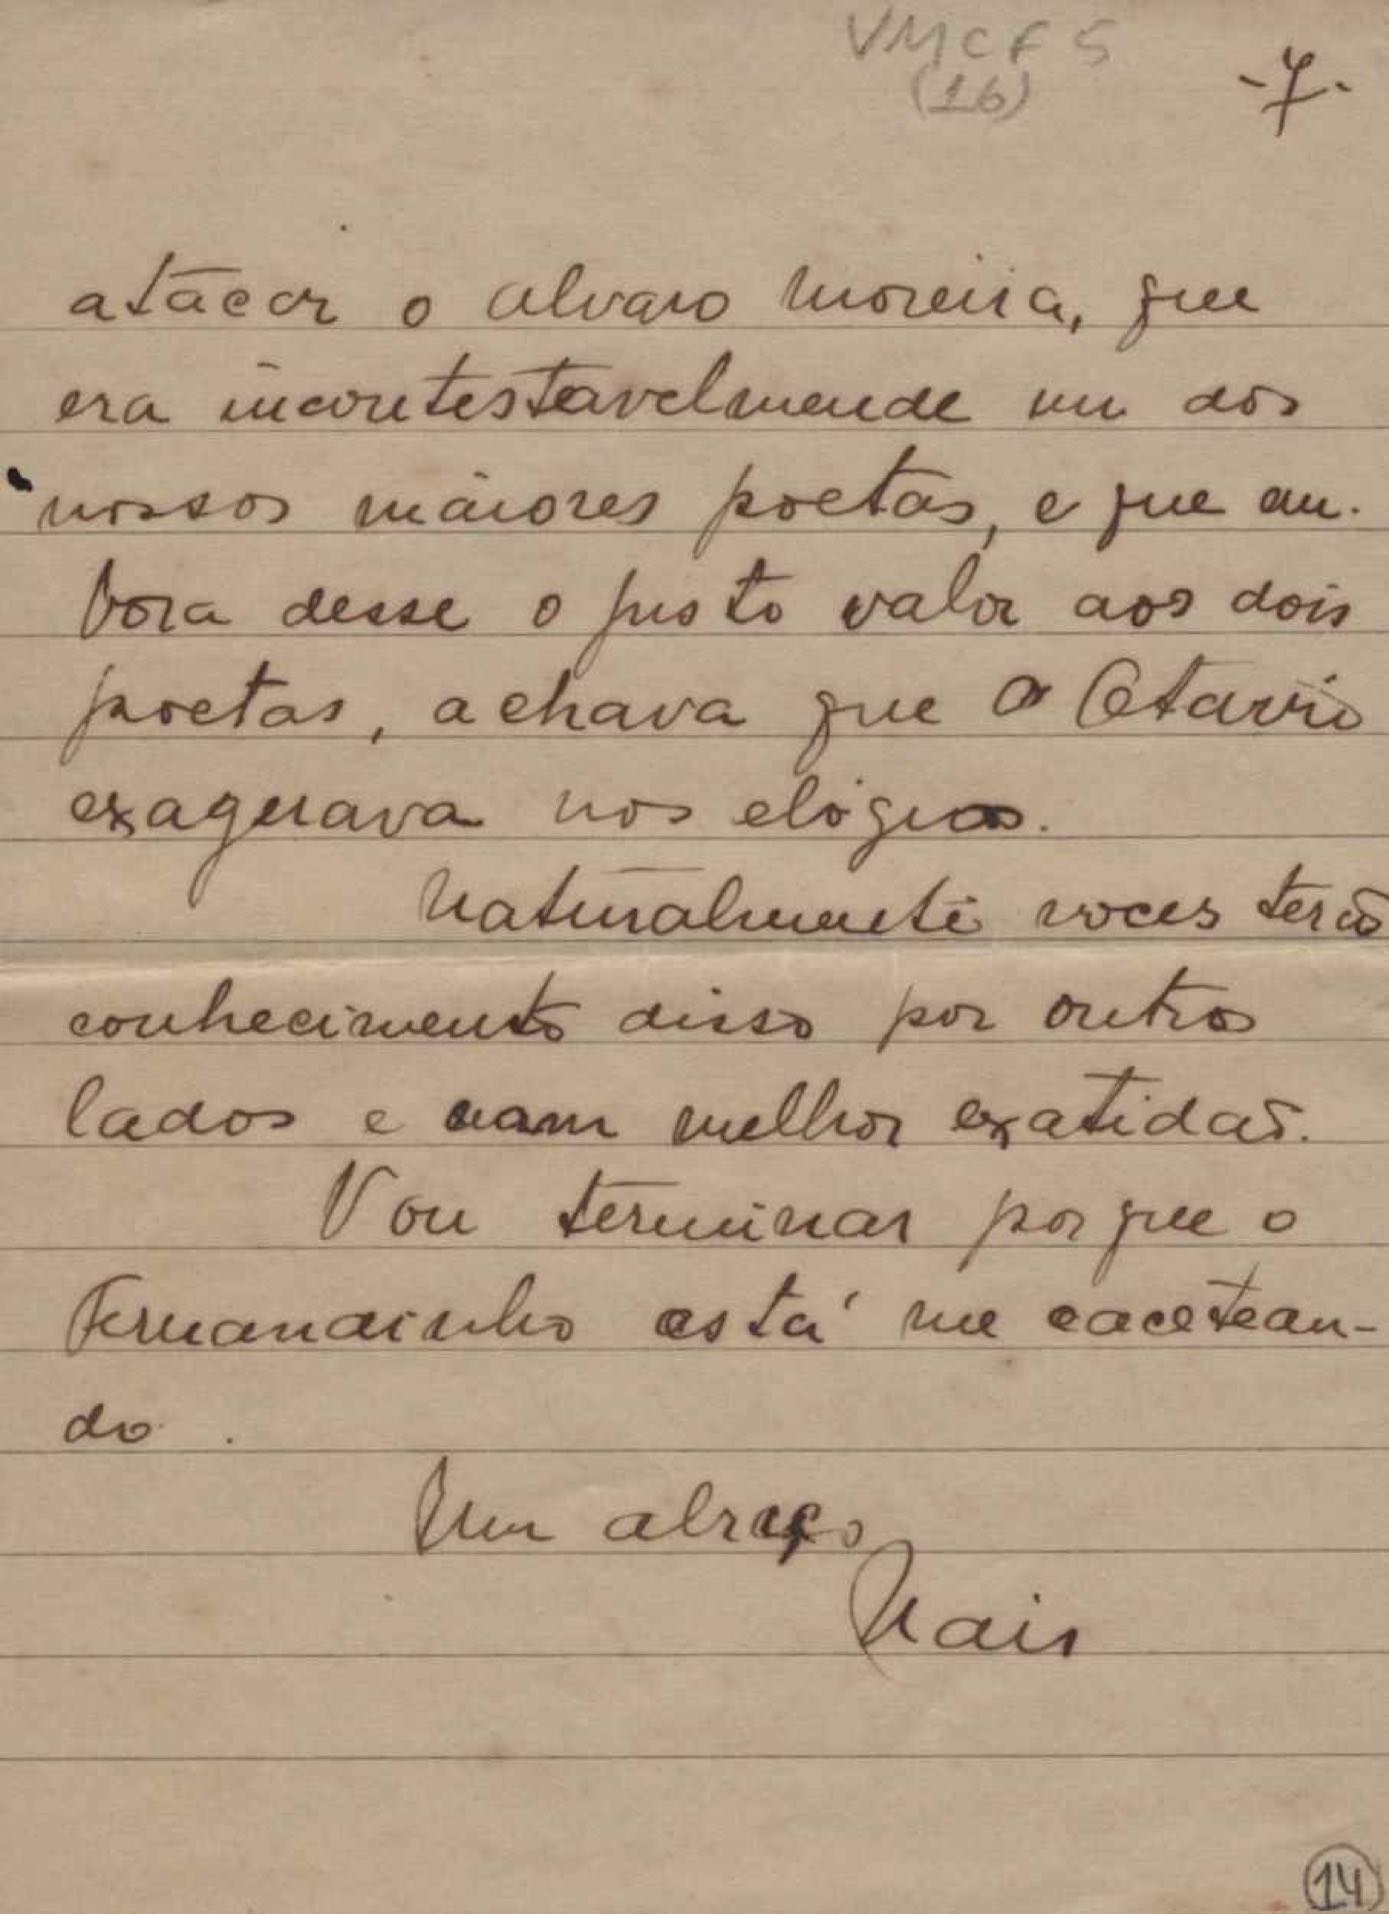 VMCF 5
(16)
-7-
atacar o Alvaro Moreira, que
era incontestavelmende um dos
nossos maiores poetas, e que em-
bora desse o justo valor aos dois
poetas, achava que o Otavio
exagerava nos elógios.
Naturalmente voces terão
conhecimento disso por outros
lados e com melhor exatidaõ.
Vou terminar porque o
Fernandinho está me cacetean-
do.
Um abraço
Nair
14